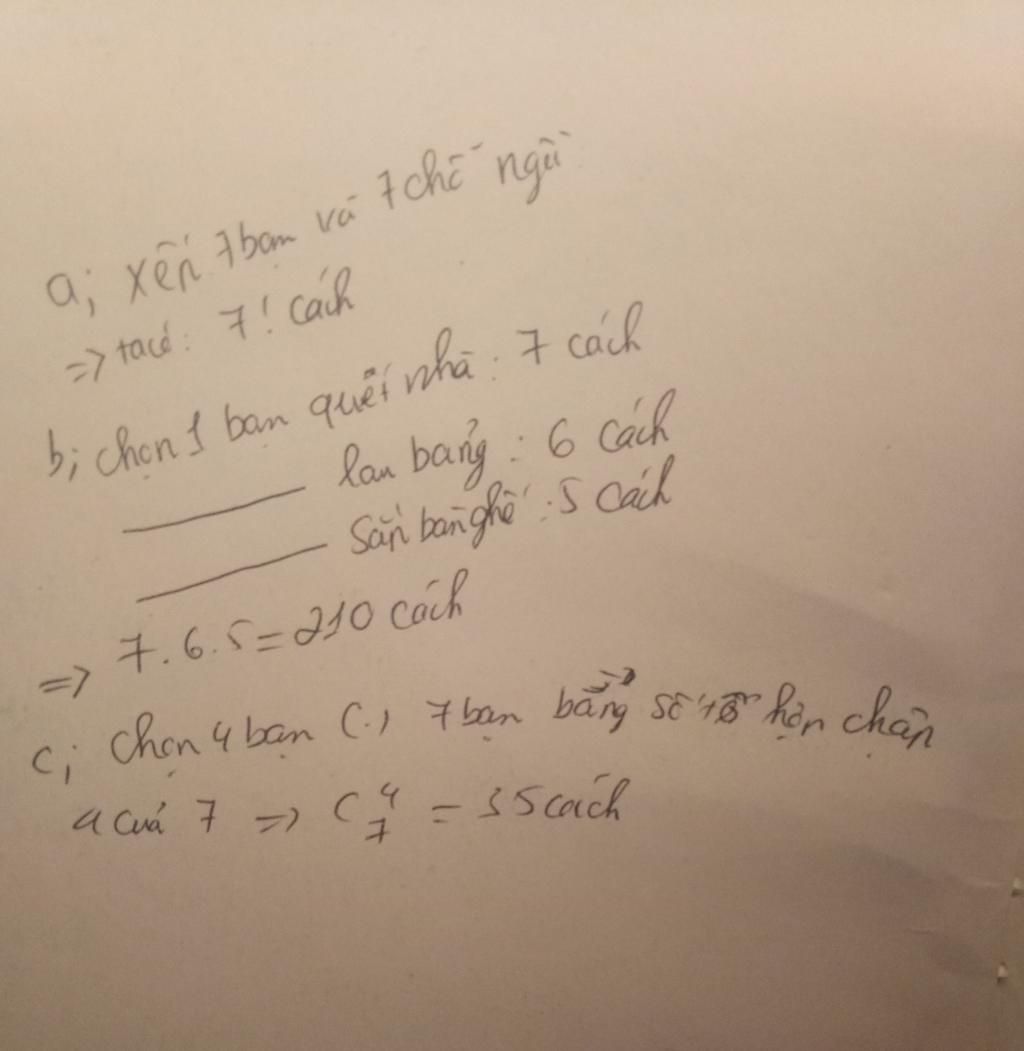 a; xếp 7 bạn và 7 chỗ ngồi
=> ta có: 7! cách
b; chọn 1 bạn quét nhà: 7 cách
lau bảng: 6 cách
sắp bàn ghế: 5 cách
=> 7.6.5 = 210 cách
c; Chọn 4 bạn (.) 7 bạn bằng số tổ hợp chập
4 của 7 => C⁴₇ = 35 cách